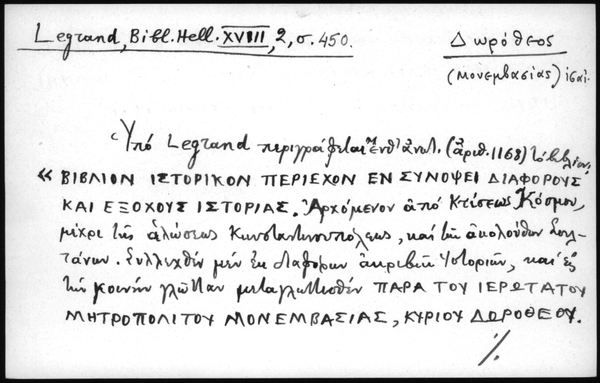 Legrand, Bibl. Hell. XVIII, 2, σ. 450.
Δωρόθεος
(Μονεμβασίας)
Ὑπό Legrand περιγράφεται (ἀριθ. 1168) τό βιβλίον,
« ΒΙΒΛΙΟΝ ΙΣΤΟΡΙΚΟΝ ΠΕΡΙΕΧΟΝ ΕΝ ΣΥΝΟΨΕΙ ΔΙΑΦΟΡΟΥΣ
ΚΑΙ ΕΞΟΧΟΥΣ ΙΣΤΟΡΙΑΣ. Ἀρχόμενον ἀπό Κτίσεως Κόσμου,
μέχρι τῆς ἁλώσεως Κωνσταντινουπόλεως, καί τῶν ἀκολούθων Σουλ-
τάνων. Συλλεχθέν μέν ἐκ διαφόρων ἀκριβῶν Ἱστοριῶν, καί εἰς
τήν κοινήν γλῶτταν μεταγλωττισθέν ΠΑΡΑ ΤΟΥ ΙΕΡΩΤΑΤΟΥ
ΜΗΤΡΟΠΟΛΙΤΟΥ ΜΟΝΕΜΒΑΣΙΑΣ, ΚΥΡΙΟΥ ΔΩΡΟΘΕΟΥ.
·/.